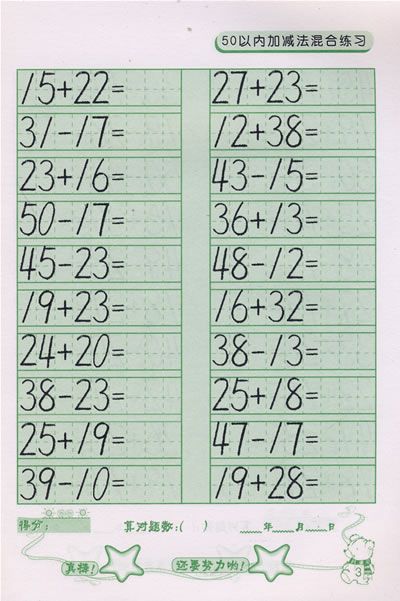 50以内加减法混合练习
15+22= 27+23=
31-17= 12+38=
23+16= 43-15=
50-17= 36+13=
45-23= 48-12=
19+23= 16+32=
24+20= 38-13=
38-23= 25+18=
25+19= 47-17=
39-10= 19+28=
得分: 算对题数:( ) 年 月 日
真棒! 还要努力哟!
3